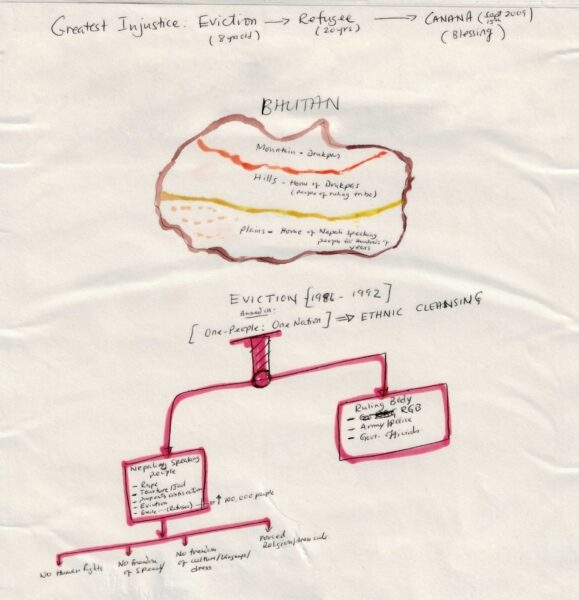 Greatest Injustice: Eviction → Refugee → CANANA (Sept 2009
15th
(8 yrs old) (20 yrs) (Blessing)
BHUTAN
Mountain - Drukpas
Hills - Home of Drukpas
(people of ruling tribe)
Plains - Home of Nepali speaking
people for Hundreds of
years
EVICTION [1986 - 1992]
Based on
[One-People: One Nation] ⇒ ETHNIC CLEANSING
Ruling Body
- RGB
- Army/Police
- Govt. Officials
Nepali Speaking
people
- Rape
- Torture/Jail
- property confiscation
- Eviction
- (Refugee) → ↑ 100,000 people
No Human Rights
No freedom
of speech/
No freedom
of culture/language/
dress
Forced
Religion/dress code